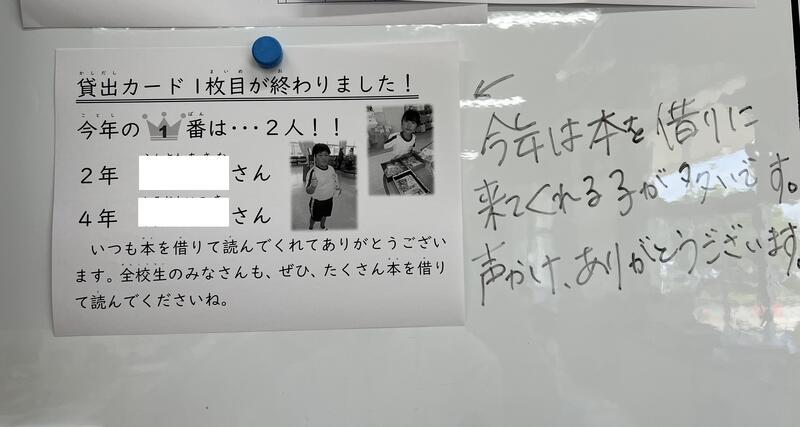 貸出カード1枚目が終わりました！
今年の1番は・・・2人！！
2年 さん
4年 さん
いつも本を借りて読んでくれてありがとうござい
ます。全校生のみなさんも、ぜひ、たくさん本を借り
て読んでくださいね。
今年は本を借りに
来てくれる子が多いです。
声かけ、ありがとうございます。